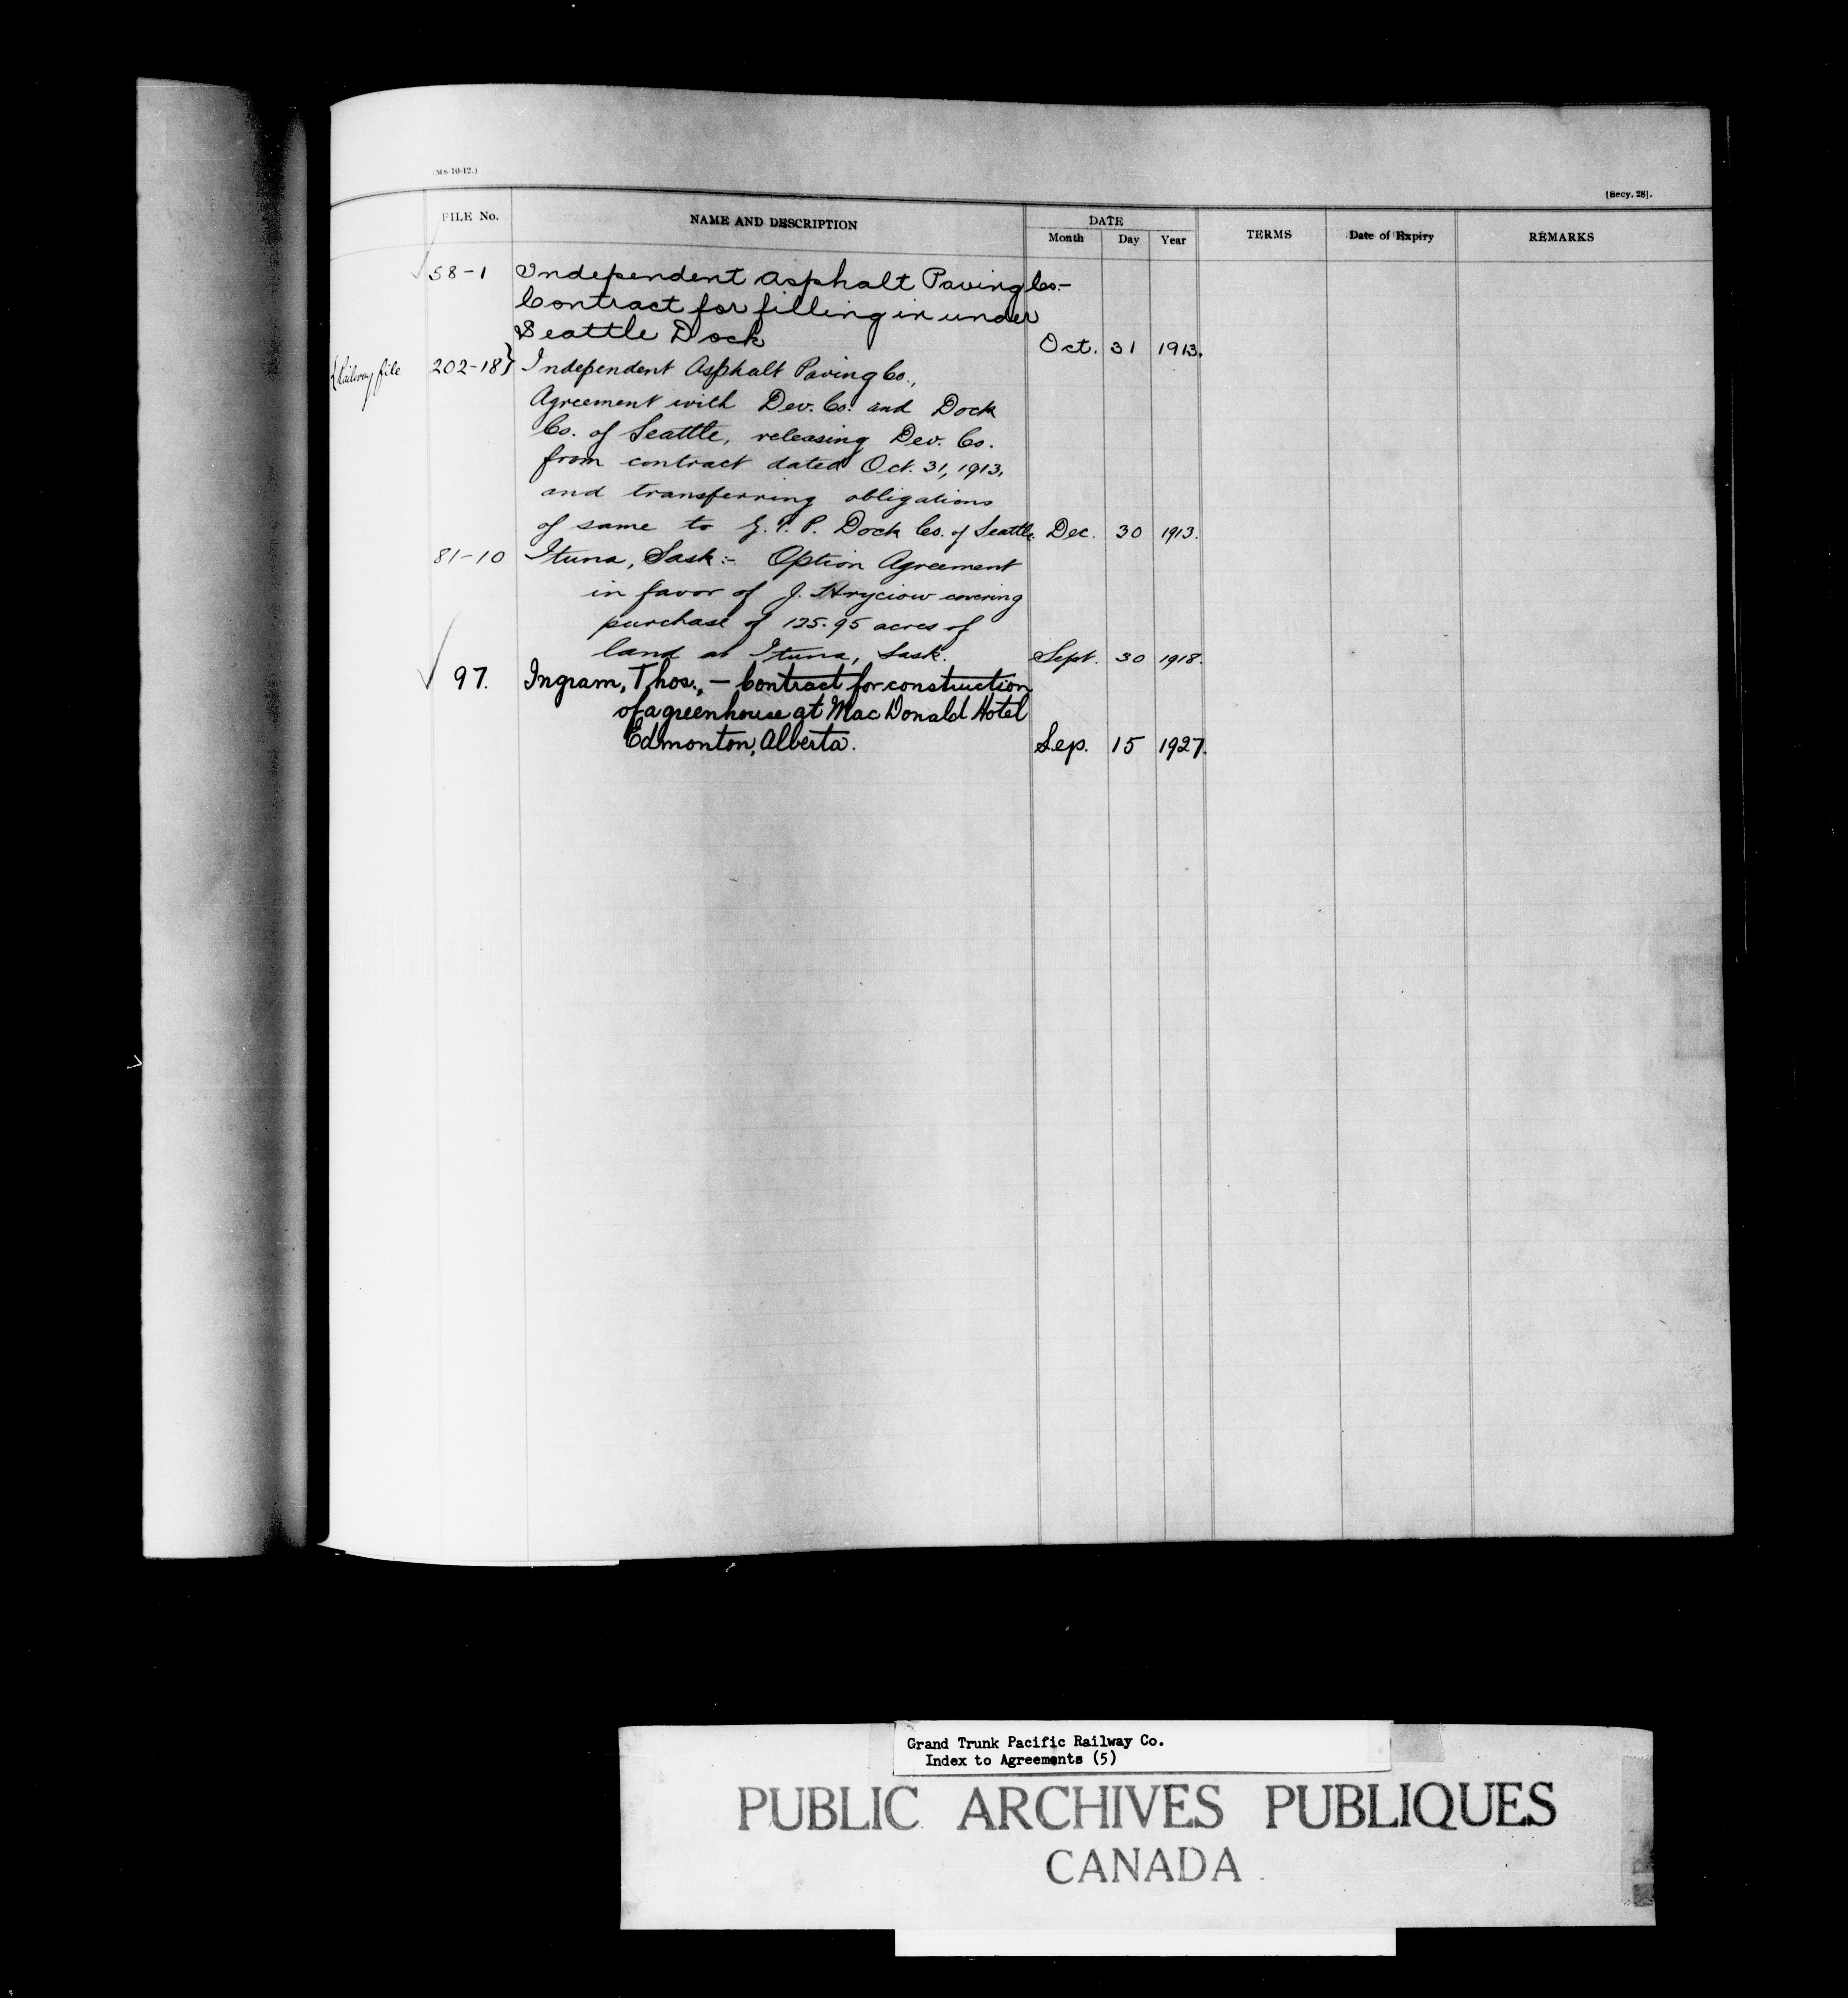 (MS-10-12.)
[Secy. 28].
FILE No. NAME AND DESCRIPTION DATE TERMS Date of Expiry REMARKS
Month Day Year
58-1 Independent Asphalt Paving Co.-
Contract for filling in under
Seattle Dock Oct. 31 1913.
{Railway file 202-18} Independent Asphalt Paving Co.,
Agreement with Dev. Co. and Dock
Co. of Seattle, releasing Dev. Co.
from contract dated Oct. 31, 1913,
and transferring obligations
of same to G. T. P. Dock Co. of Seattle. Dec. 30 1913.
81-10 Ituna, Sask:- Option Agreement
in favor of J. Hryciow covering
purchase of 125.95 acres of
land at Ituna, Sask. Sept. 30 1918.
97. Ingram, Thos., - Contract for construction
of a greenhouse at MacDonald Hotel
Edmonton, Alberta. Sep. 15 1927.
Grand Trunk Pacific Railway Co.
Index to Agreements (5)
PUBLIC ARCHIVES PUBLIQUES
CANADA